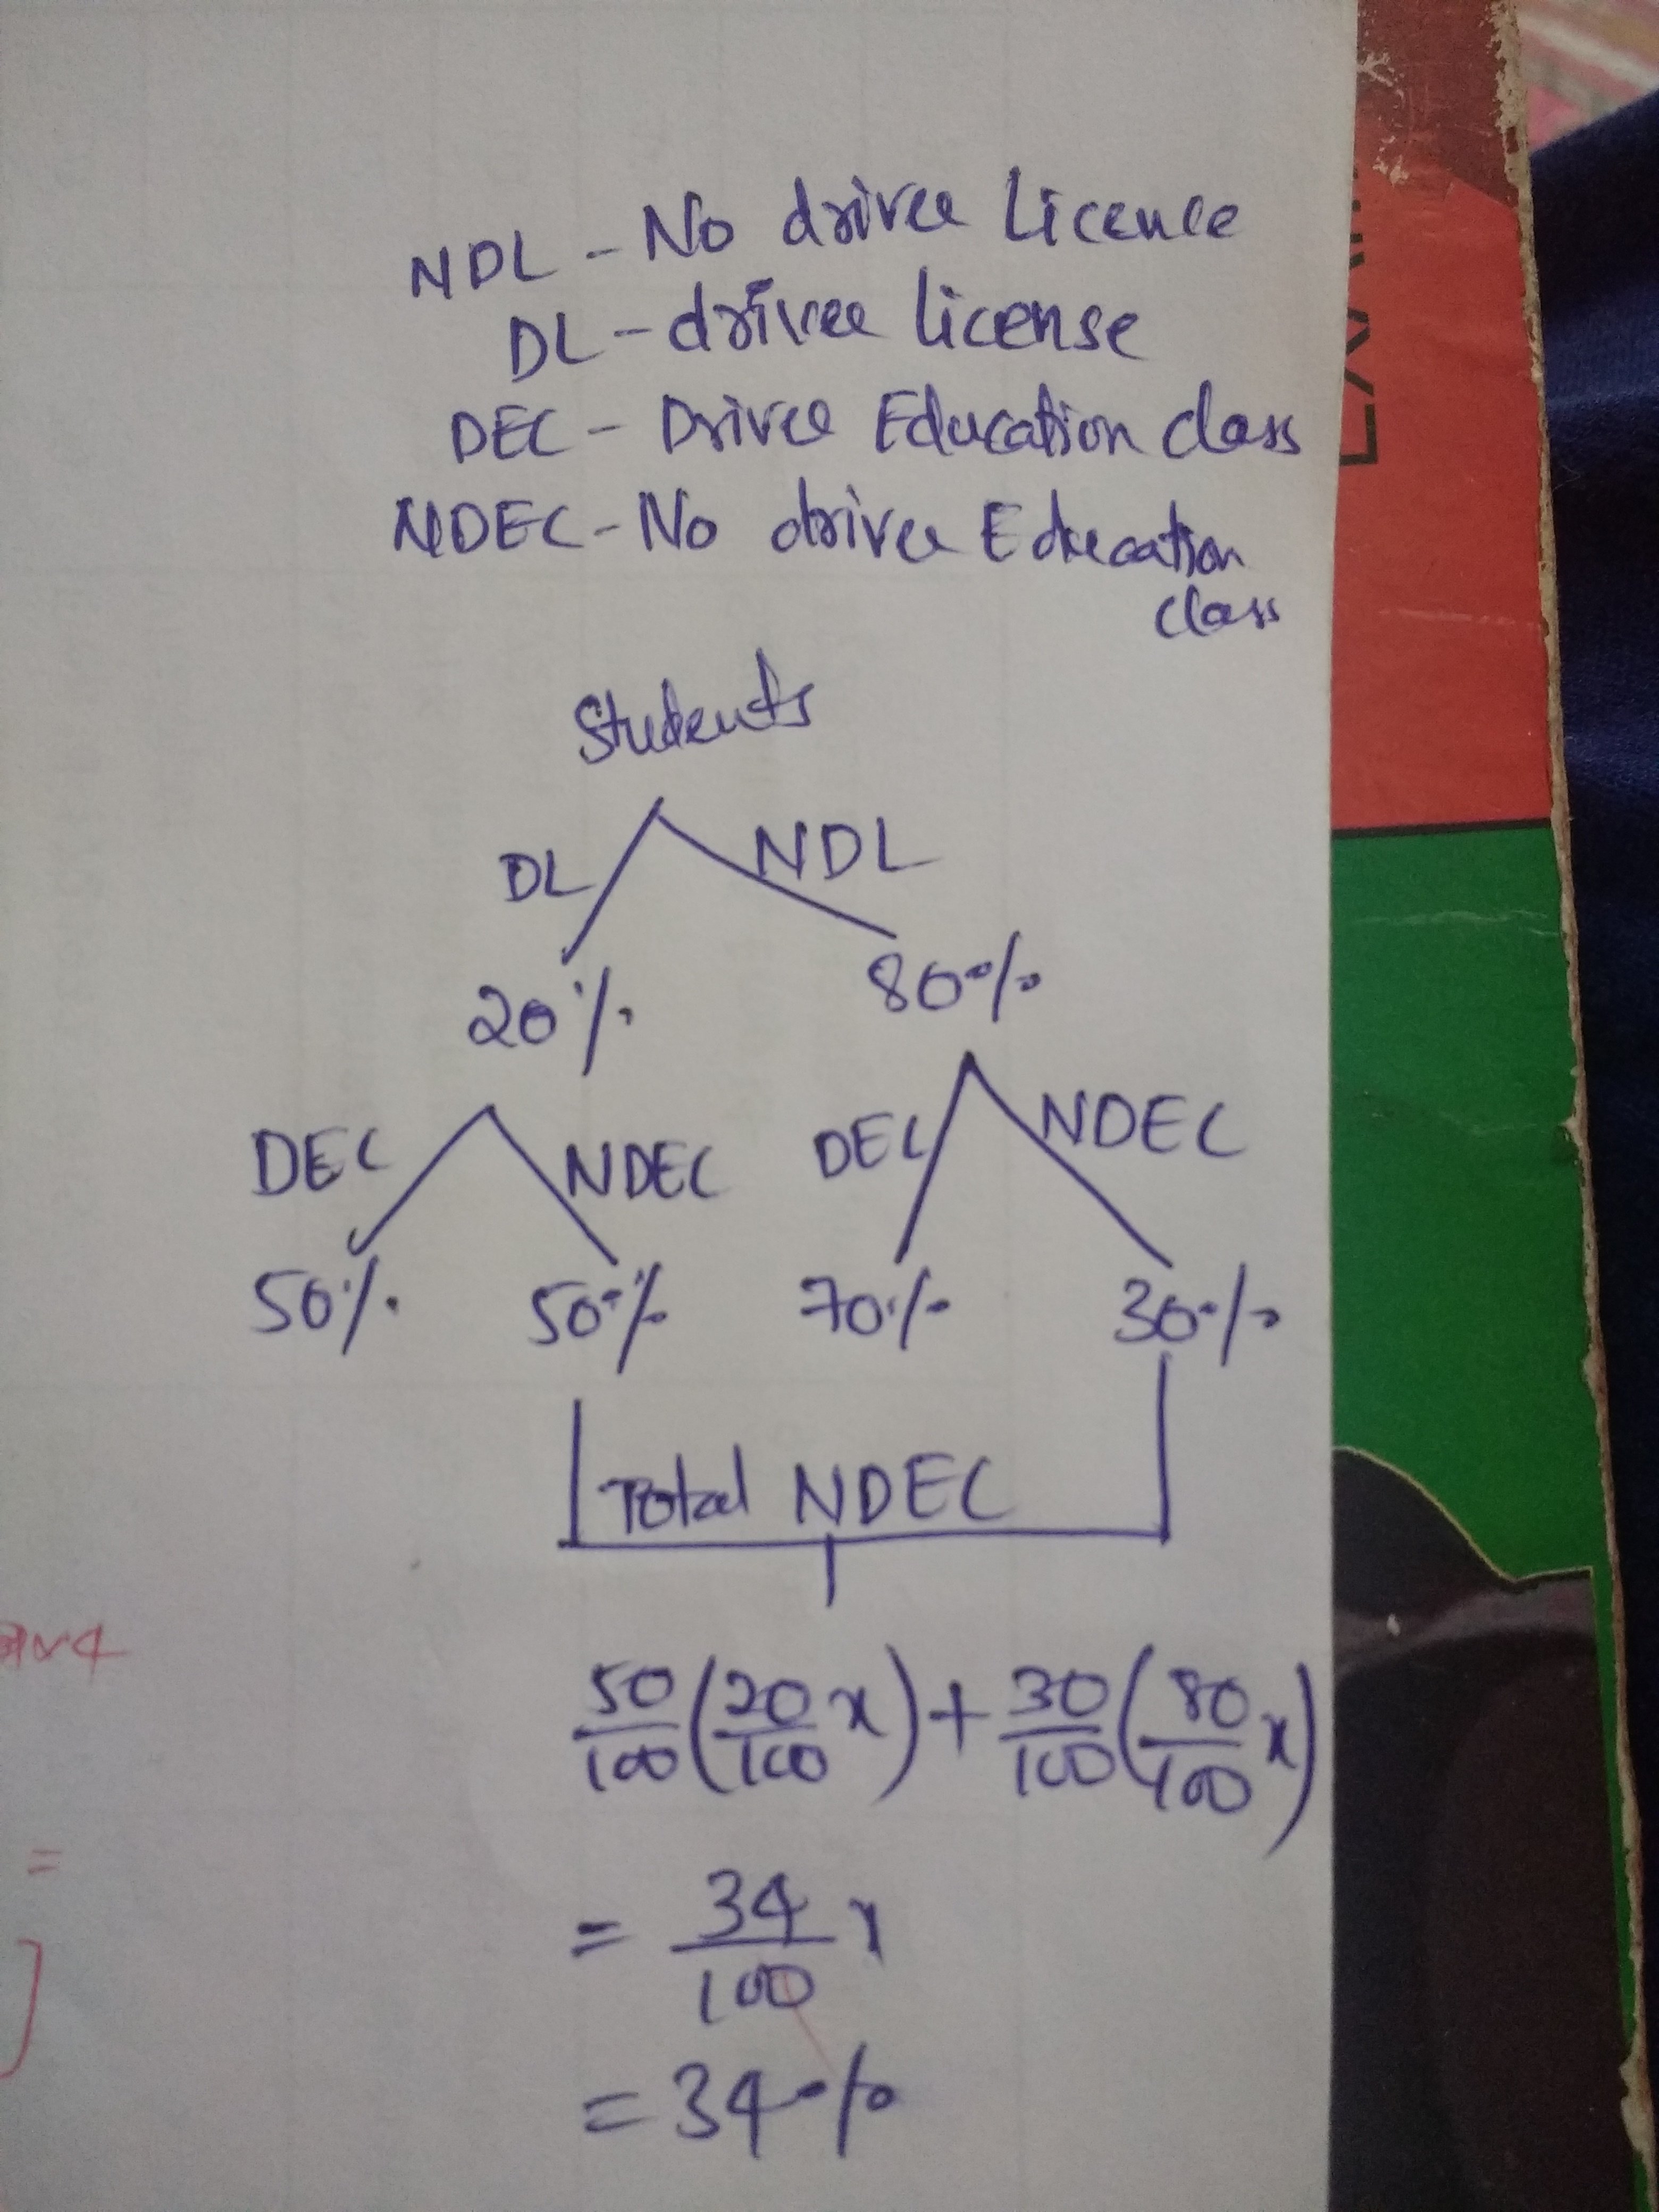 NDL - No driver Licence
DL - driver license
DEC - Driver Education class
NDEC - No driver Education
class
Students
DL NDL
20% 80%
DEC NDEC DEC NDEC
50% 50% 70% 30%
Total NDEC
50/100 (20/100 x) + 30/100 (80/100 x)
= 34/100 x
= 34%
=
]
EXAM